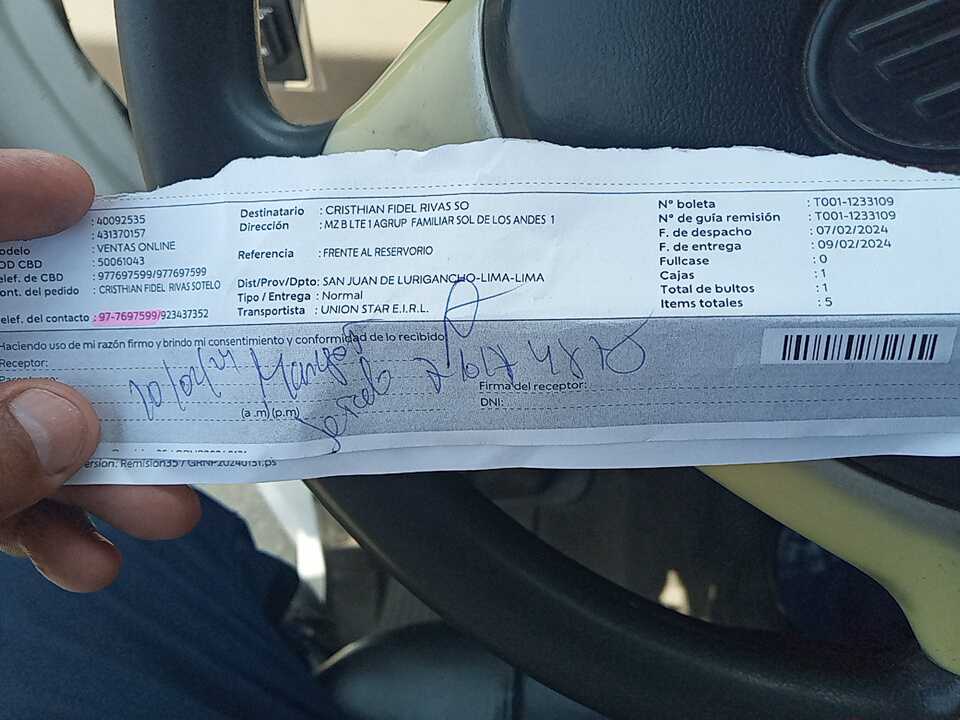 : 40092535
: 431370157
odelo : VENTAS ONLINE
OD CBD : 50061043
elef. de CBD : 977697599/977697599
ont. del pedido : CRISTHIAN FIDEL RIVAS SOTELO
elef. del contacto : 97-7697599/923437352
Destinatario : CRISTHIAN FIDEL RIVAS SO
Dirección : MZ B LTE 1 AGRUP FAMILIAR SOL DE LOS ANDES 1
Referencia : FRENTE AL RESERVORIO
Dist/Prov/Dpto: SAN JUAN DE LURIGANCHO-LIMA-LIMA
Tipo / Entrega : Normal
Transportista : UNION STAR E.I.R.L.
Nº boleta : T001-1233109
Nº de guía remisión : T001-1233109
F. de despacho : 07/02/2024
F. de entrega : 09/02/2024
Fullcase : 0
Cajas : 1
Total de bultos : 1
Items totales : 5
Haciendo uso de mi razón firmo y brindo mi consentimiento y conformidad de lo recibido
Receptor:
(a .m) (p.m)
Firma del receptor:
DNI:
ersion: Remision35 / GRNP20240131.ps